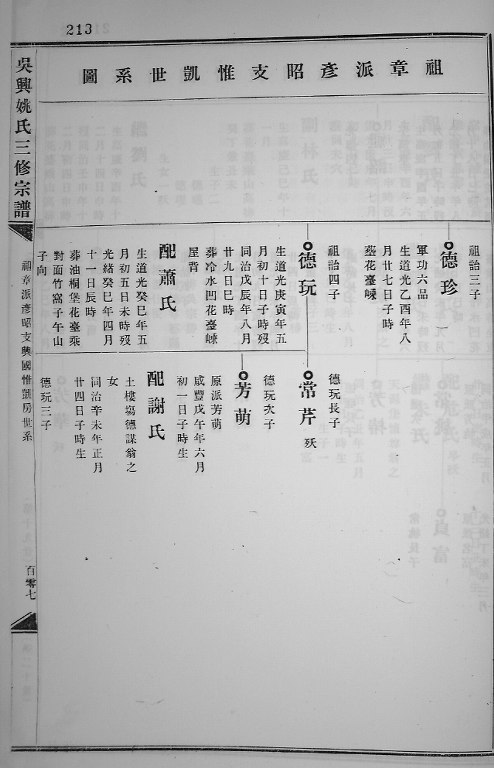 213
祖章派彥昭支惟凱世系圖
祖詒三子
德珍
軍功六品
生道光乙酉年八
月廿七日子時歿
塟花臺嵊
祖詒四子
德玩
生道光庚寅年五
月初十日子時歿
同治戊辰年八月
廿九日巳時
葬冷水凹花臺嵊
屋背
配蕭氏
生道光癸巳年五
月初五日未時歿
光緒癸巳年四月
十一日辰時
葬油榨堡花臺乘
對面竹窩子午山
子向
德玩長子
常芹 殀
德玩次子
芳萌
原派芳萌
咸豐戊午年六月
初一日子時生
配謝氏
土樓塲德謀翁之
女
同治辛未年正月
廿四日子時生
德玩三子
吳興姚氏三修宗譜
祖章派彥昭支興國惟凱房世系
百零七